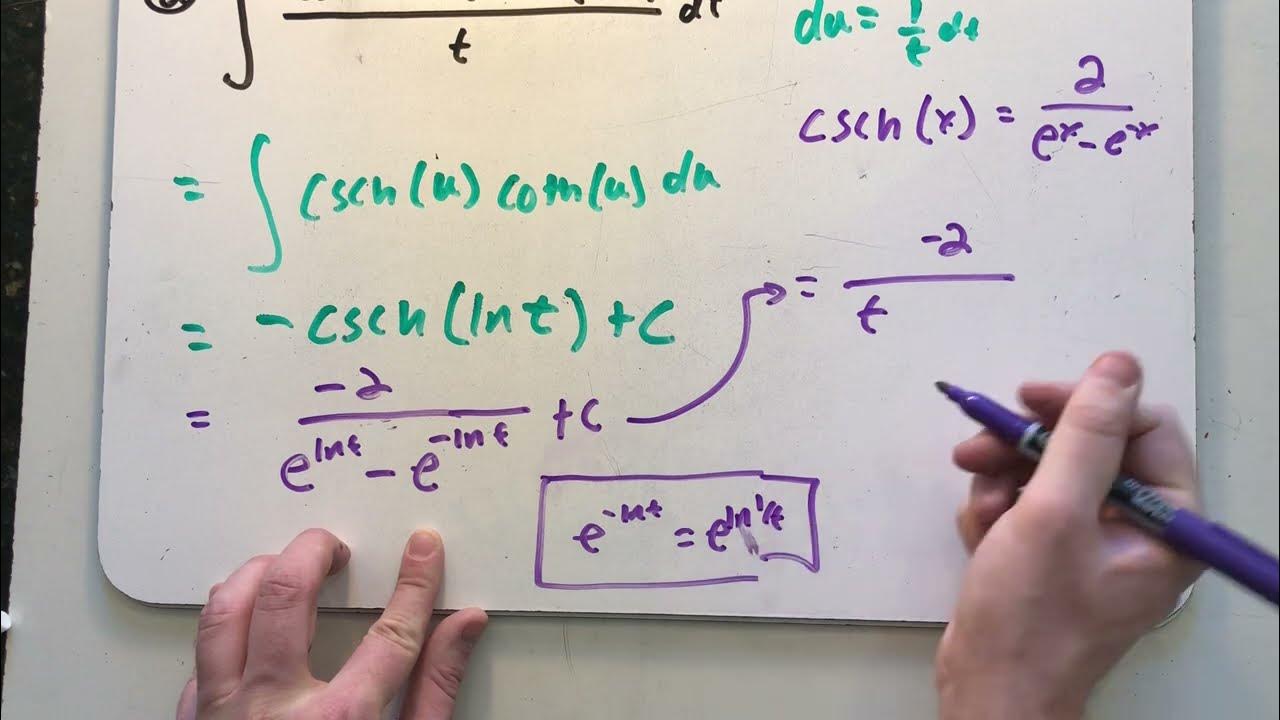 ∫ / t dt
du = 1/t dt
csch(x) = 2 / (e^x - e^x)
= ∫ csch(u) coth(u) du
= -csch(ln t) + C
= -2 / (e^(ln t) - e^(-ln t)) + C
= -2 / t
e^(-ln t) = e^(ln 1/t)